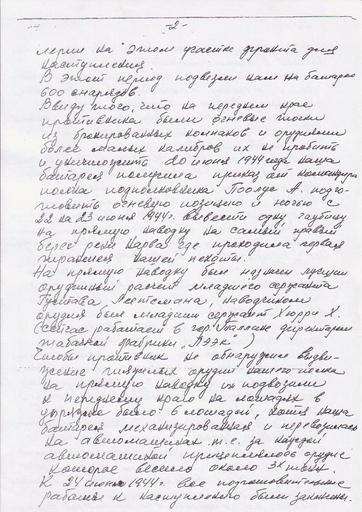 -2-
лерии на этом участке фронта для
наступления.
В этот период подвезли нам на батарею
600 снарядов.
Ввиду того, что на переднем крае
противника были огневые точки
из бронированных колпаков и орудиями
более малых калибров их не пробить
и уничтожить 20 июня 1944 года наша
батарея получила приказ от командира
полка подполковника Паолус А. подго-
товить огневую позицию и ночью с
22 на 23 июня 1944г. вывести одну гаубицу
на прямую наводку на самый правый
берег реки Нарва где проходила первая
траншея нашей пехоты.
На прямую наводку был назначен лучший
орудийный расчёт младшего сержанта
Густава наводчиком
орудия был младший сержант Хюрри Х.
(Сейчас работает в гор. Таллине директором
фабрики )
Чтобы противник не обнаружил выдви-
жение тяжелых орудий нашего полка
на прямую наводку их подвозили
к переднему краю на лошадях в
упряжке было 6 лошадей, хотя наша
батарея механизированная и перевозилась
на автомашинах т.е. за каждой
автомашиной прицеплялось орудие
которое весило около 3х тонн.
К 24 июню 1944г. все подготовительные
работы к наступлению были закончены.